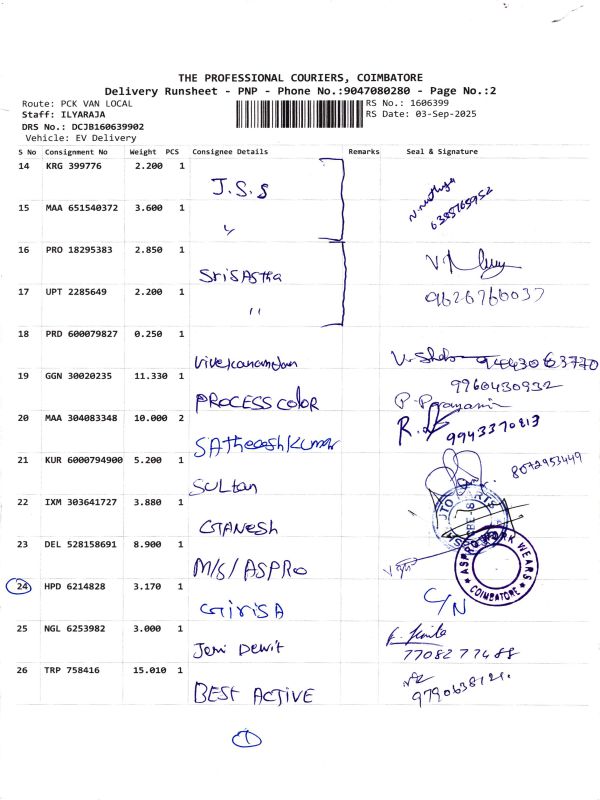 THE PROFESSIONAL COURIERS, COIMBATORE
Delivery Runsheet - PNP - Phone No.:9047080280 - Page No.:2
Route: PCK VAN LOCAL RS No.: 1606399
Staff: ILYARAJA RS Date: 03-Sep-2025
DRS No.: DCJB160639902
Vehicle: EV Delivery
S No Consignment No Weight PCS Consignee Details Remarks Seal & Signature
14 KRG 399776 2.200 1
J.S.S
15 MAA 651540372 3.600 1
6385765952
16 PRO 18295383 2.850 1
SriSAstha
17 UPT 2285649 2.200 1
" 9626766037
18 PRD 600079827 0.250 1
9443063770
19 GGN 30020235 11.330 1
9960430932
PROCESS COLOR
20 MAA 304083348 10.000 2
R. 9943370213
SAtheeshKumar
21 KUR 6000794900 5.200 1
8072953449
SULtan
22 IXM 303641727 3.880 1
GANESH
23 DEL 528158691 8.900 1
M/S/ ASPRO
ASPRO WORK WEARS
COIMBATORE
24 HPD 6214828 3.170 1
GirisA C/N
25 NGL 6253982 3.000 1
Jeni Dewit
7708277488
26 TRP 758416 15.010 1
BEST ACTIVE
1